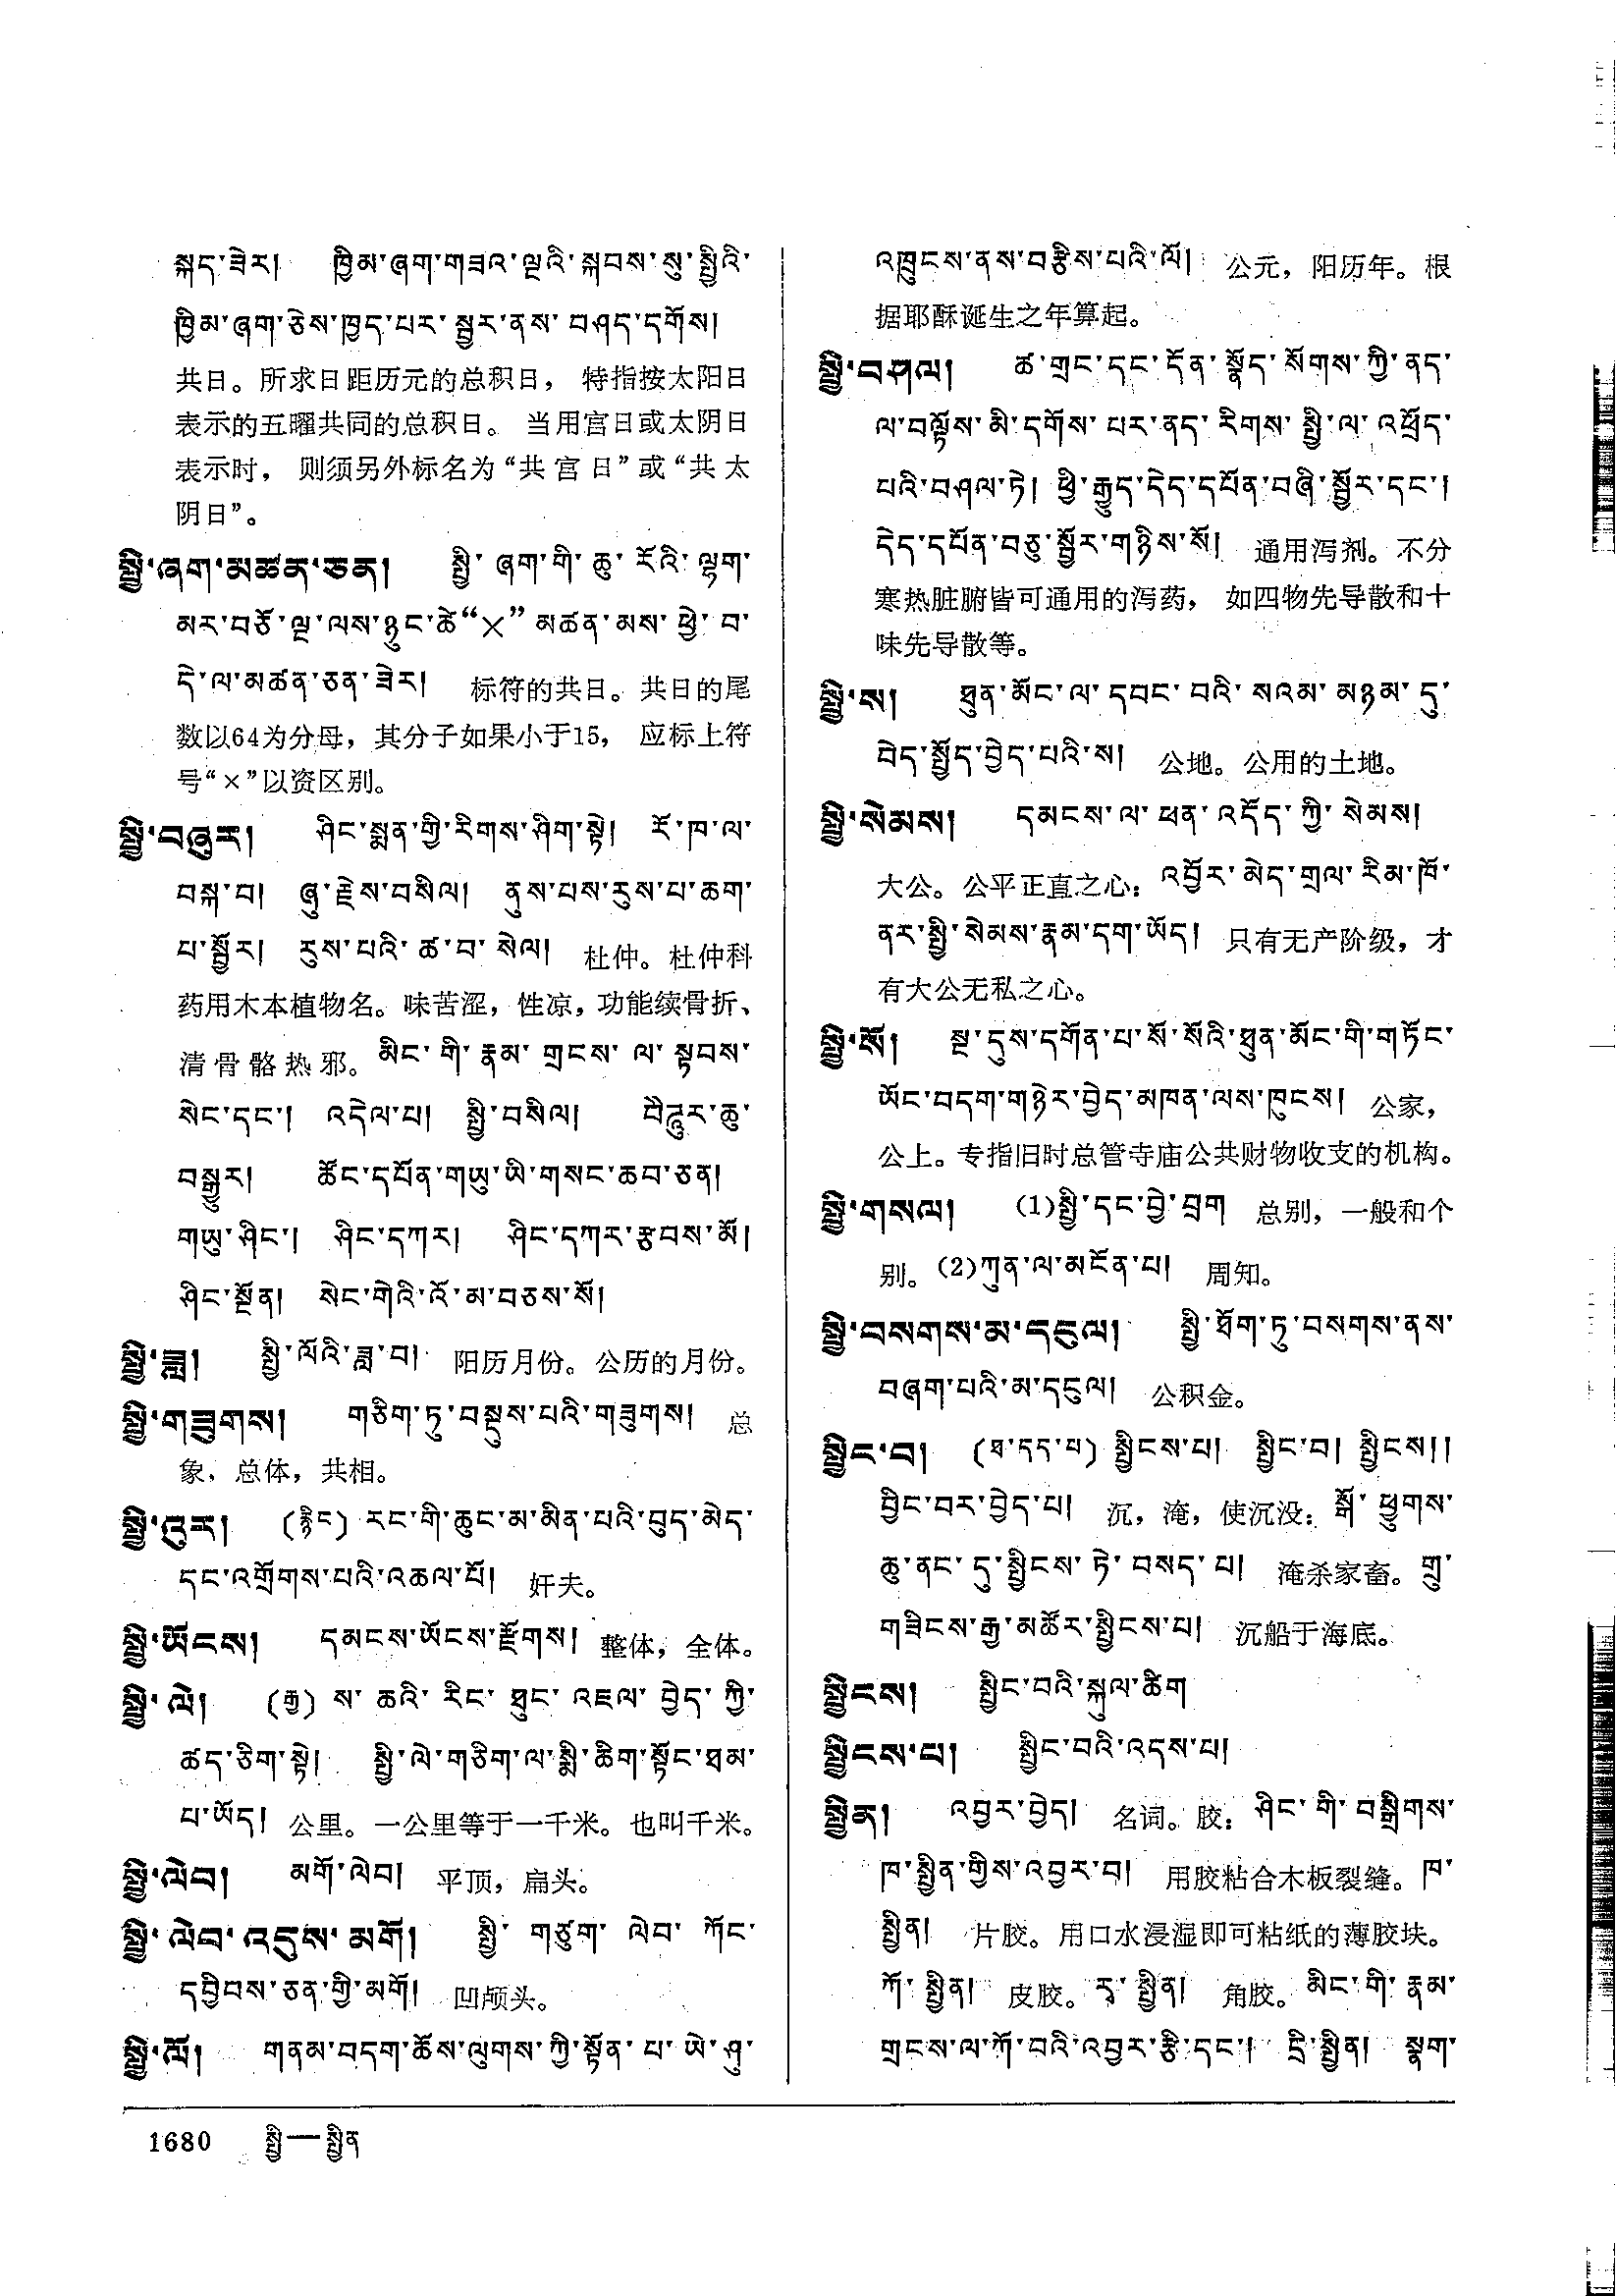 སྐད་ཟེར། ཁྱིམ་ཞག་གཟའ་ལྔའི་སྐབས་སུ་སྤྱིའི་
ཁྱིམ་ཞག་ཅེས་ཁྱད་པར་སྦྱར་ནས་བཤད་དགོས།
共日。所求日距历元的总积日， 特指按太阳日
表示的五曜共同的总积日。 当用宫日或太阴日
表示时， 则须另外标名为“共宫日”或“共太
阴日”。
སྤྱི་ཞག་མཚན་ཅན། སྤྱི་ཞག་གི་ཆུ་ངོའི་ལྷག་
མར་བཅོ་ལྔ་ལས་ཉུང་ཚེ“×”མཚན་མས་ཕྱེ་བ་
དེ་ལ་མཚན་ཅན་ཟེར། 标符的共日。共日的尾
数以64为分母，其分子如果小于15， 应标上符
号“×”以资区别。
སྤྱི་བཞུར། ཤིང་སྨན་གྱི་རིགས་ཤིག་སྟེ། རོ་ཁ་ལ་
བསྐ་བ། ཞུ་རྗེས་བསིལ། ནུས་པས་རུས་པ་ཆག་
པ་སྦྱོར། རུས་པའི་ཚ་བ་སེལ། 杜仲。杜仲科
药用木本植物名。味苦涩，性凉，功能续骨折、
清骨骼热邪。མིང་གི་རྣམ་གྲངས་ལ་སྟབས་
སེང་དང་། འདེལ་པ། སྤྱི་བསིལ། བཻཌཱུར་ཆུ་
བསྒྱུར། ཚོང་དཔོན་གཡུ་ཡི་གསང་ཆབ་ཅན།
གཡུ་ཤིང་། ཤིང་དཀར། ཤིང་དཀར་རྩབས་མོ།
ཤིང་སྔོན། སེང་གེའི་འོ་མ་བཅས་སོ།
སྤྱི་ཟླ། སྤྱི་ལོའི་ཟླ་བ། 阳历月份。公历的月份。
སྤྱི་གཟུགས། གཅིག་ཏུ་བསྡུས་པའི་གཟུགས། 总
象，总体，共相。
སྤྱི་འུར། (རྙིང) རང་གི་ཆུང་མ་མིན་པའི་བུད་མེད་
དང་འགྲོགས་པའི་འཆལ་པོ། 奸夫。
སྤྱི་ཡོངས། དམངས་ཡོངས་རྫོགས། 整体，全体。
སྤྱི་ལེ། (རྒྱ) ས་ཆའི་རིང་ཐུང་འཇལ་བྱེད་ཀྱི་
ཚད་ཅིག་སྟེ། སྤྱི་ལེ་གཅིག་ལ་སྨི་ཆིག་སྟོང་ཐམ་
པ་ཡོད། 公里。一公里等于一千米。也叫千米。
སྤྱི་ལེབ། མགོ་ལེབ། 平顶，扁头。
སྤྱི་ལེབ་འདུས་མགོ། སྤྱི་གཙུག་ལེབ་ཀོང་
དབྱིབས་ཅན་གྱི་མགོ། 凹颅头。
སྤྱི་ལོ། གནམ་བདག་ཆོས་ལུགས་ཀྱི་སྟོན་པ་ཡེ་ཤུ་
འཁྲུངས་ནས་བརྩིས་པའི་ལོ། 公元，阳历年。根
据耶酥诞生之年算起。
སྤྱི་བཤལ། ཚ་གྲང་དང་དོན་སྣོད་སོགས་ཀྱི་ནད་
ལ་བལྟོས་མི་དགོས་པར་ནད་རིགས་སྤྱི་ལ་འཕྲོད་
པའི་བཤལ་ཏེ། ཕྱི་རྒྱུད་དེད་དཔོན་བཞི་སྦྱོར་དང་།
དེད་དཔོན་བཅུ་སྦྱོར་གཉིས་སོ། 通用泻剂。不分
寒热脏腑皆可通用的泻药， 如四物先导散和十
味先导散等。
སྤྱི་ས། ཐུན་མོང་ལ་དབང་བའི་སའམ་མཉམ་དུ་
བེད་སྤྱོད་བྱེད་པའི་ས། 公地。公用的土地。
སྤྱི་སེམས། དམངས་ལ་ཕན་འདོད་ཀྱི་སེམས།
大公。公平正直之心：འབྱོར་མེད་གྲལ་རིམ་ཁོ་
ནར་སྤྱི་སེམས་རྣམ་དག་ཡོད། 只有无产阶级，才
有大公无私之心。
སྤྱི་སོ། སྔ་དུས་དགོན་པ་སོ་སོའི་ཐུན་མོང་གི་གཏོང་
ཡོང་བདག་གཉེར་བྱེད་མཁན་ལས་ཁུངས། 公家，
公上。专指旧时总管寺庙公共财物收支的机构。
སྤྱི་གསལ། (1)སྤྱི་དང་བྱེ་བྲག 总别，一般和个
别。(2)ཀུན་ལ་མངོན་པ། 周知。
སྤྱི་བསགས་མ་དངུལ། སྤྱི་ཐོག་ཏུ་བསགས་ནས་
བཞག་པའི་མ་དངུལ། 公积金。
སྤྱིང་བ། (ཐ་དད་པ) སྤྱིངས་པ། སྤྱིང་བ། སྤྱིངས།།
བྱིང་བར་བྱེད་པ། 沉，淹，使沉没：སྒོ་ཕྱུགས་
ཆུ་ནང་དུ་སྤྱིངས་ཏེ་བསད་པ། 淹杀家畜。གྲུ་
གཟིངས་རྒྱ་མཚོར་སྤྱིངས་པ། 沉船于海底。
སྤྱིངས། སྤྱིང་བའི་སྐུལ་ཚིག
སྤྱིངས་པ། སྤྱིང་བའི་འདས་པ།
སྤྱིན། འབྱར་བྱེད། 名词。胶：ཤིང་གི་བསྒྲིགས་
ཁ་སྤྱིན་གྱིས་འབྱར་བ། 用胶粘合木板裂缝。ཁ་
སྤྱིན། 片胶。用口水浸湿即可粘纸的薄胶块。
ཀོ་སྤྱིན། 皮胶。རྭ་སྤྱིན། 角胶。མིང་གི་རྣམ་
གྲངས་ལ་ཀོ་བའི་འབྱར་རྩི་དང་། དྲི་སྤྱིན། སྣག་
1680 སྤྱི—སྤྱིན